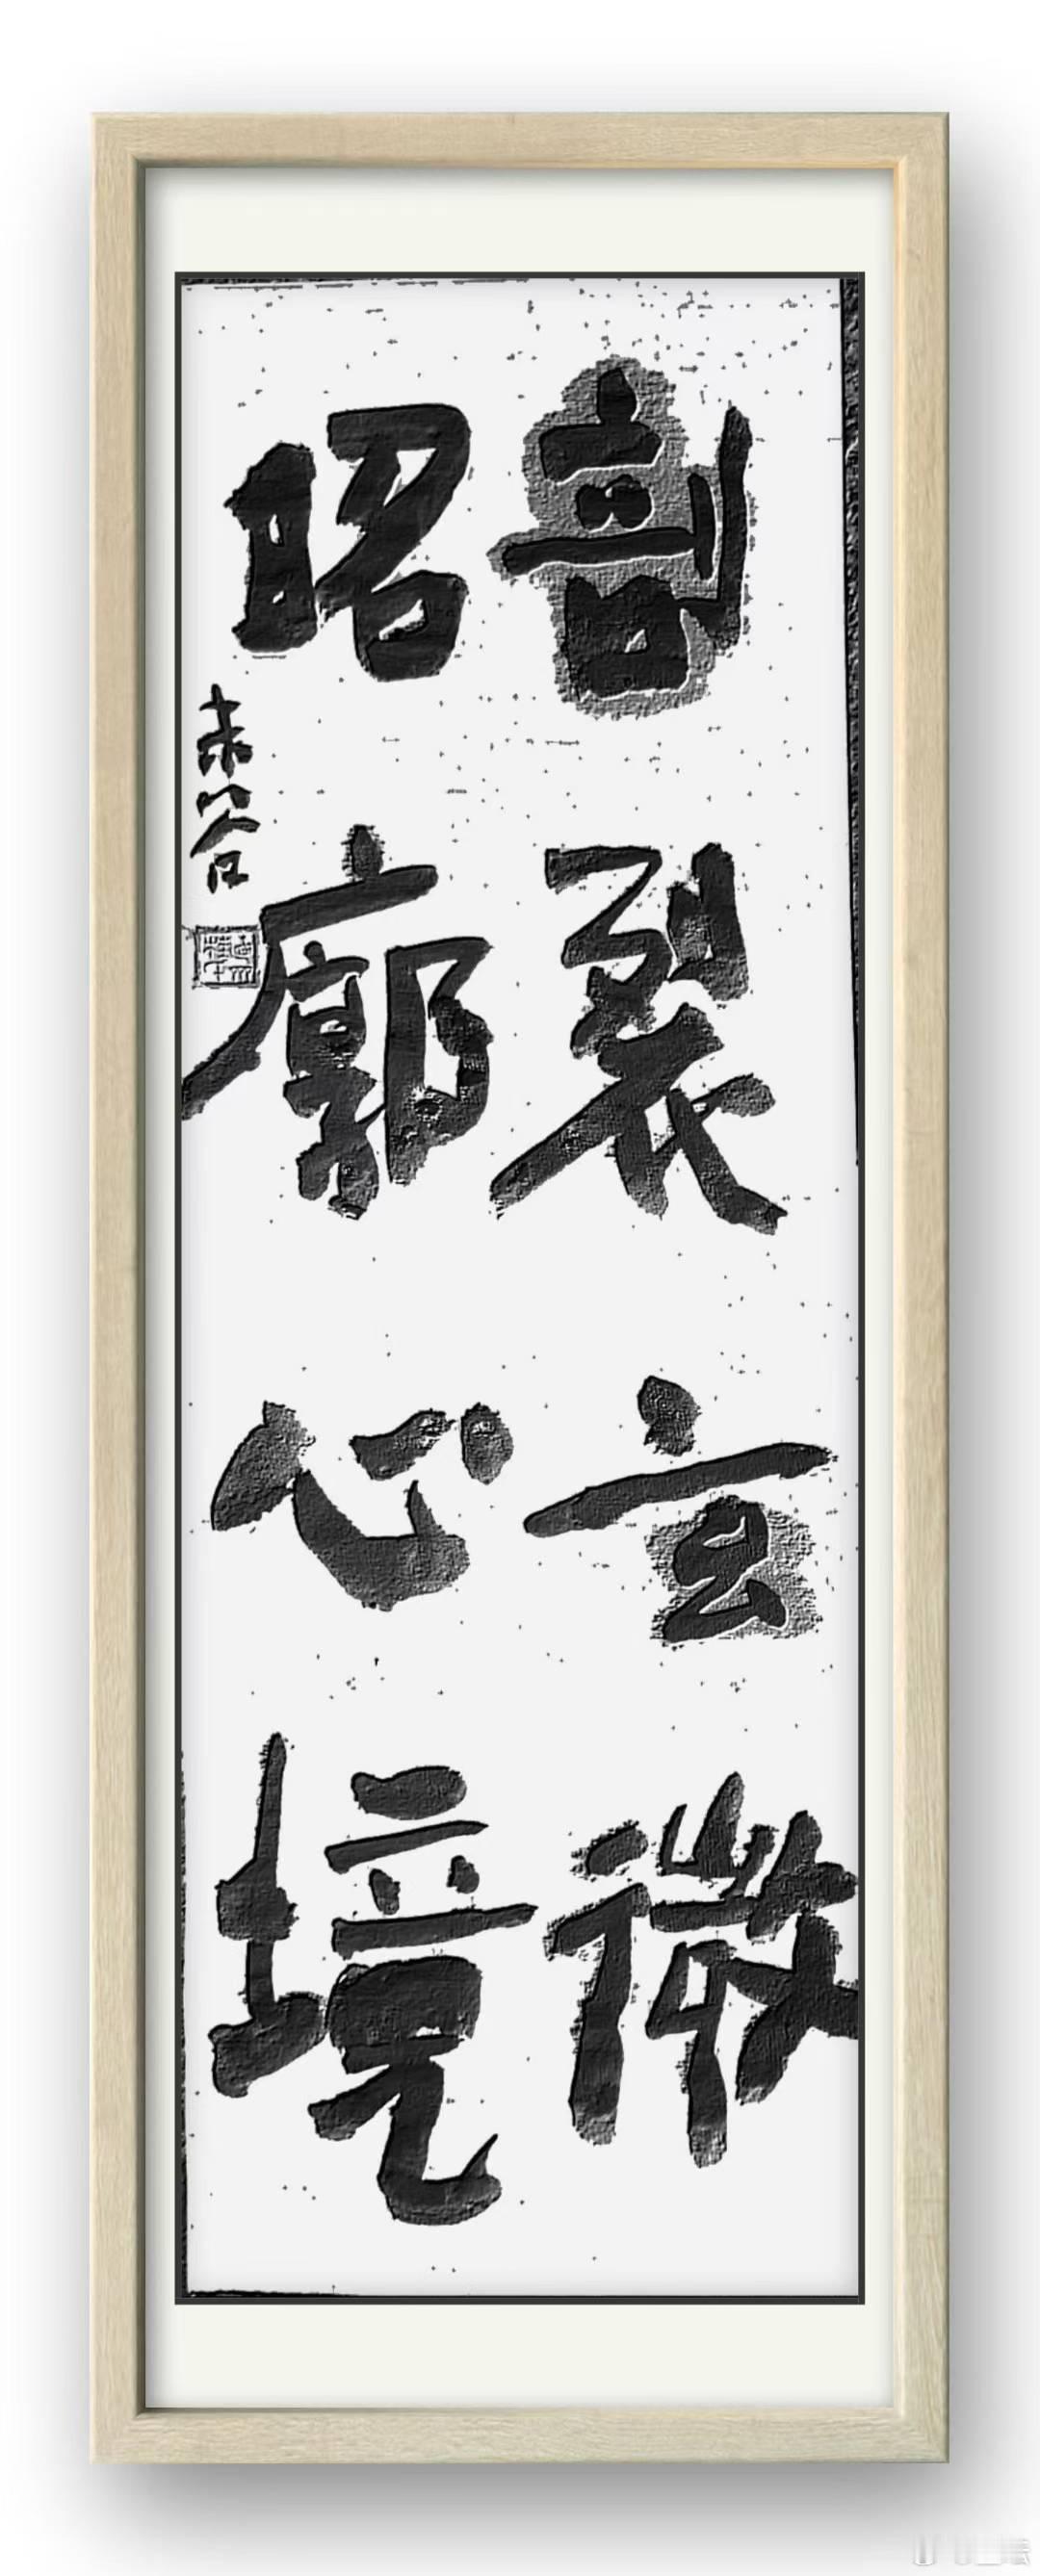 剖裂玄微
昭廓心境
未谷